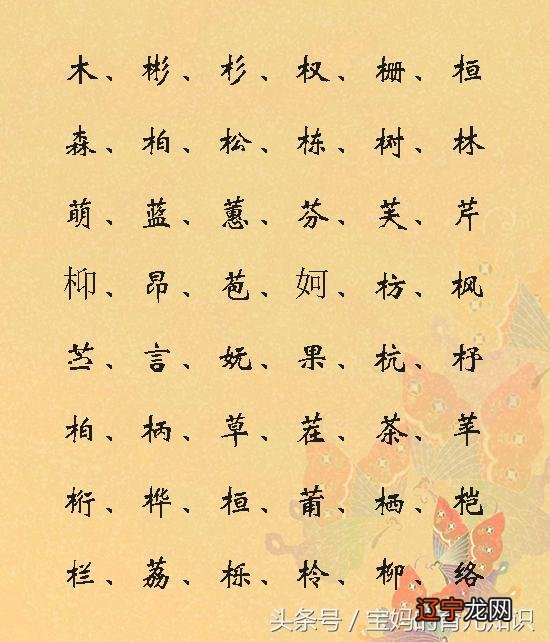 木、彬、杉、权、栅、桓
森、柏、松、栋、树、林
萌、蓝、蕙、芬、芙、芹
枊、昂、苞、妸、枋、枫
、言、妩、果、杭、杼
柏、柄、草、茬、茶、苹
桁、桦、桓、莆、栖、桤
栏、荔、栎、柃、柳、络
头条号／宝妈的育儿知识
辽宁龙网